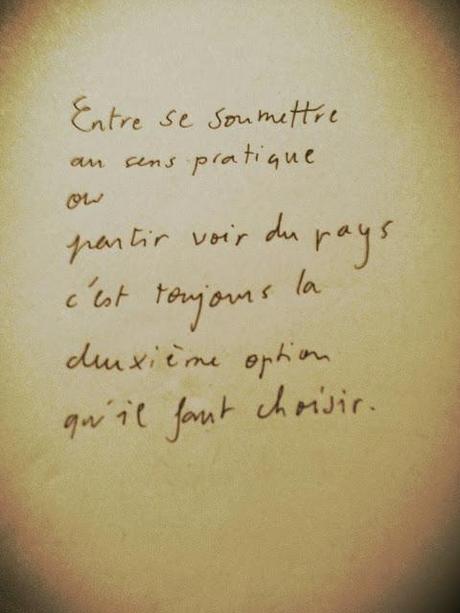 Entre se soumettre
au sens pratique
ou
partir voir du pays
c'est toujours la
deuxième option
qu'il faut choisir.